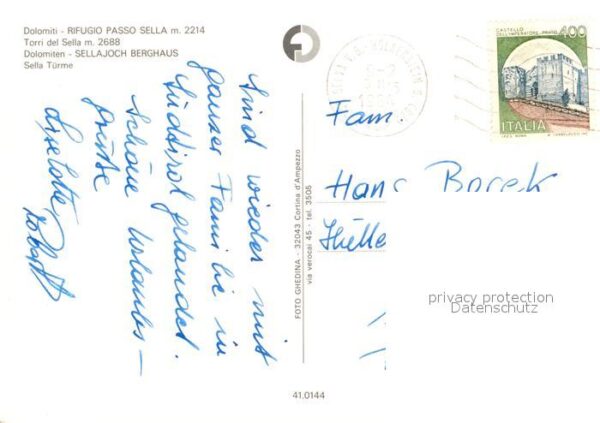 Dolomiti - RIFUGIO PASSO SELLA m. 2214
Torri del Sella m. 2688
Dolomiten - SELLAJOCH BERGHAUS
Sella Türme
Sind wieder mit
ganzer Familie in
Südtirol gelandet.
Schöne Urlaubs-
grüße
Liselotte
Robert
FOTO GHEDINA - 32043 Cortina d'Ampezzo
via verocai 45 - tel. 3506
41.0144
CASTELLO
DELL'IMPERATORE - PRATO
400
ITALIA
Fam.
Hans Borek
privacy protection
Datenschutz